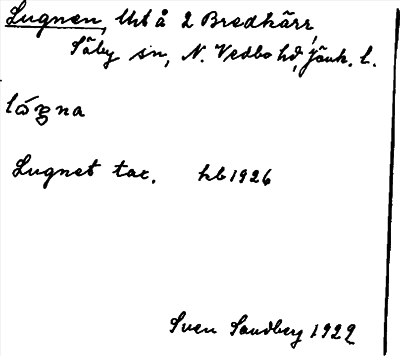 Lugnen, lht å 2 Bredkärr,
Säby sn, N. Vedbo hd, Jönk. l.
lóŋna
Lugnet tax. hb 1926
Sven Sandberg 1929